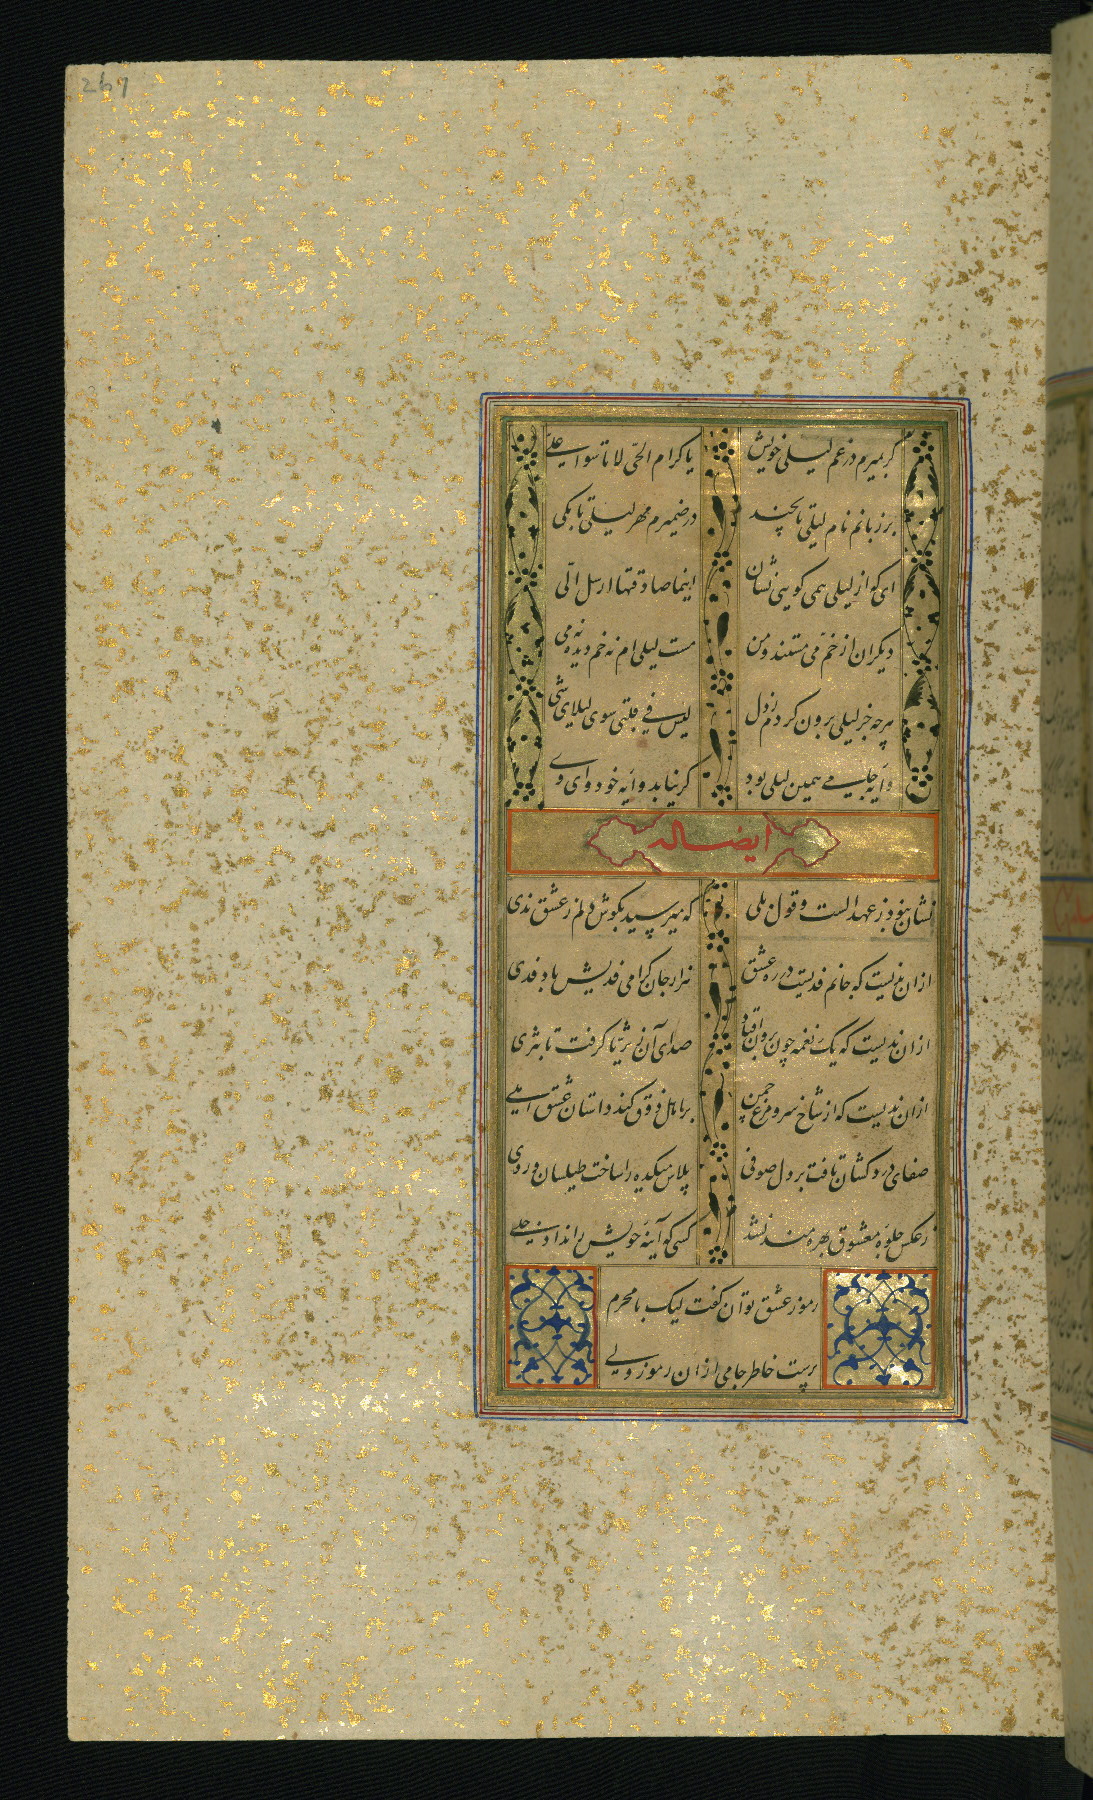 267
گر بمیرم در غم لیلی خویش یا کرام الحی لا تاسوا علی
بر زبانم نام لیلی تا بچند در ضمیرم مهر لیلی تا بکی
ای که از لیلی همی گویی نشان اینما صادقتها ارسل الی
دیگران از خم می مستند و من مست لیلی ام نه خم دیده نه می
هرچه جز لیلی برون کردم ز دل لیس فی قلبی سوی لیلای شی
وایه جامی همین لیلی بود گر نیابد وایه خود وای وی
ایضا له
نشان نبود ز عهد الست و قول بلی که میرسید بگوش دلم ز عشق ندی
ازان ندیست که جانم فدیست در ره عشق هزار جان گرامی فدیش باد فدی
ازان ندیست که یک نغمه چون برون افتاد صدای آن ز ثریا گرفت تا بثری
ازان ندیست که از شاخ سرو مرغ چمن بر اهل ذوق کند داستان عشق املی
صفای درد کشان تافت بر دل صوفی پلاس میکده را ساخت طیلسان و ردی
ز عکس جلوه معشوق بهره مند نشد کسی که آینه خویش را نداد جلی
رموز عشق توان گفت لیک با محرم
پرست خاطر جامی ازان رموز ولی